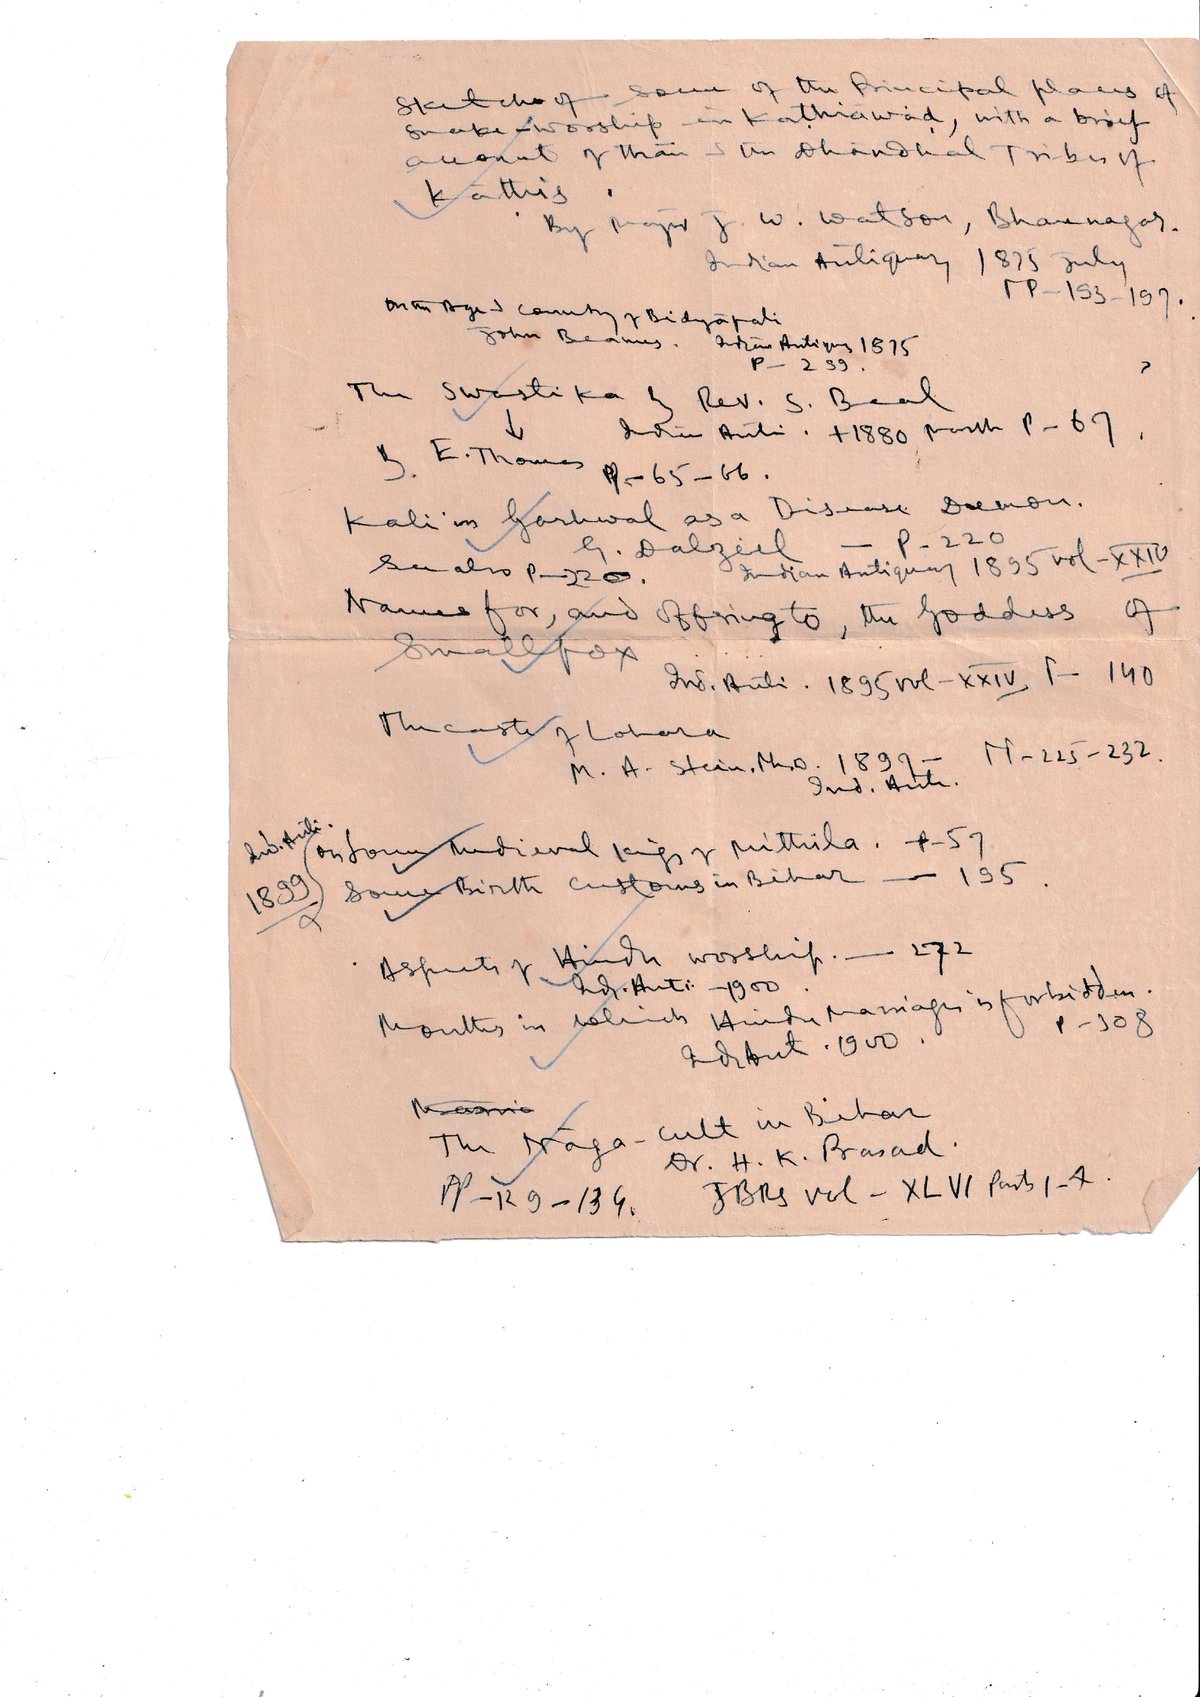 Sketche of some of the Principal places of
snake-worship in Kathiāwād, with a brief
account of Thān & the Dhāndhal Tribes of
Kāthis.
By Major J. W. Watson, Bhaunagar.
Indian Antiquary 1875 July
PP-193-197.
On the Age & Country of Bidyāpati
John Beames. Indian Antiquary 1875
P-299.
The Swastika by Rev. S. Beal
Indian Anti. 1880 March P-67.
by E. Thomas PP-65-66.
Kali in Garhwal as a Disease Demon.
G. Dalziel — P-220
See also P-220. Indian Antiquary 1895 vol-XXIV
Names for, and offering to, the Goddess of
Smallpox
Ind. Anti. 1895 vol-XXIV P- 140
The caste of Lohara
M. A. Stein, Ph.D. 1897- PP-225-232.
Ind. Anti.
Ind. Anti.
1899
On Some Medieval Kings of Mithila. P-57
Some Birth Customs in Bihar — 195.
Aspects of Hindu worship. — 272
Ind. Anti. -1900.
Months in which Hindu Marriages is forbidden.
P-308
Ind Anti. 1900.
The Nāga-cult in Bihar
Dr. H. K. Prasad.
PP-129-134. JBRS vol - XLVI Parts 1-4.